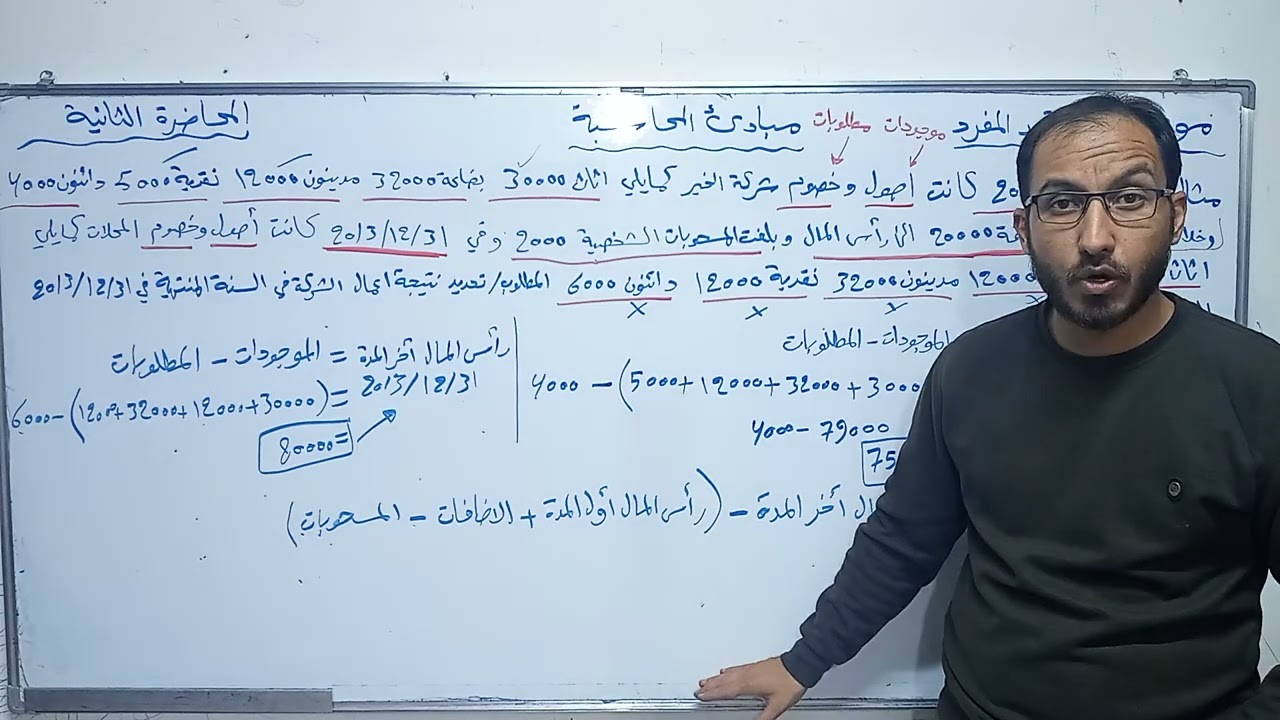 المفرد مبادئ المحاسبة المحاضرة الثانية
موجودات مطلوبات
كانت أصول وخصوم شركة الخير كمايلي اثاث 30000 بضاعة 32000 مدينون 12000 نقدية 5000 دائنون 4000
20000 الى رأس المال وبلغت المسحوبات الشخصية 2000 وفي 2013/12/31 كانت أصول وخصوم المحلات كمايلي
اثاث 12000 مدينون 32000 نقدية 12000 دائنون 6000 المطلوب/ تحديد نتيجة اعمال الشركة في السنة المنتهية في 2013/12/31
x x x
الموجودات - المطلوبات
4000 - (5000 + 12000 + 32000 +
4000 - 79000
75
رأس المال أخر المدة = الموجودات - المطلوبات
2013/12/31
= (30000 + 12000 + 32000 + 12000) - 6000
= 80000
أخر المدة - (رأس المال أول المدة + الاضافات - المسحوبات)